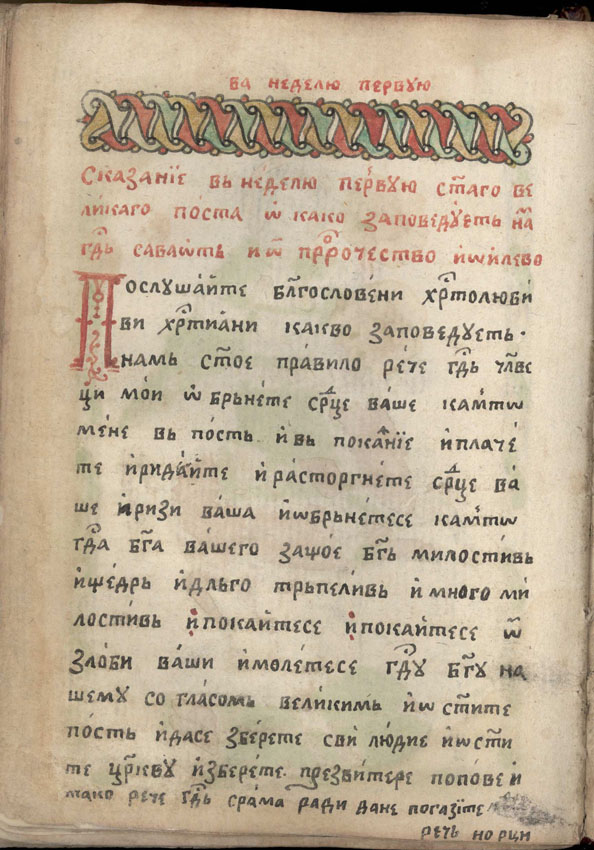 ва неделю первую
Сказанїе вь неделю первую ст҃аго ве
ликаго поста ѡ како заповедꙋеть на
гдⷭ҇ь саваѡть и ѿ прⷪ҇рочество иѡилево
Послꙋшайте блгⷭ҇ословени хрⷭ҇толюби
ви хрⷭ҇тиꙗни какво заповедꙋеть·
намь ст҃ое правило рече гдⷭ҇ь чл҃ве
ци мои ѡбрьнете срⷣце ваше камтѡ
мене вь пость и вь покаꙗнїе и плаче
те и ридаите и расторгнете срⷣце ва
ше и ризи ваша и ѡбрьнетесе камтѡ
гдⷭ҇а бг҃а вашего защое бг҃ь милостивь
и щедрь и дльго трьпеливь и много ми
лостивь и покаитесе и покаитесе ѿ
злоби ваши и молетесе гдⷭ҇ꙋ бг҃ꙋ на
шемꙋ со гласомь великимь и ѡст҃ите
пость и да се зберете сви людие и ѡст҃и
те црⷦ҇евꙋ изберете презвитере попове и
тако рече гдⷭ҇ь срама ради да не погазїте
речь но рци